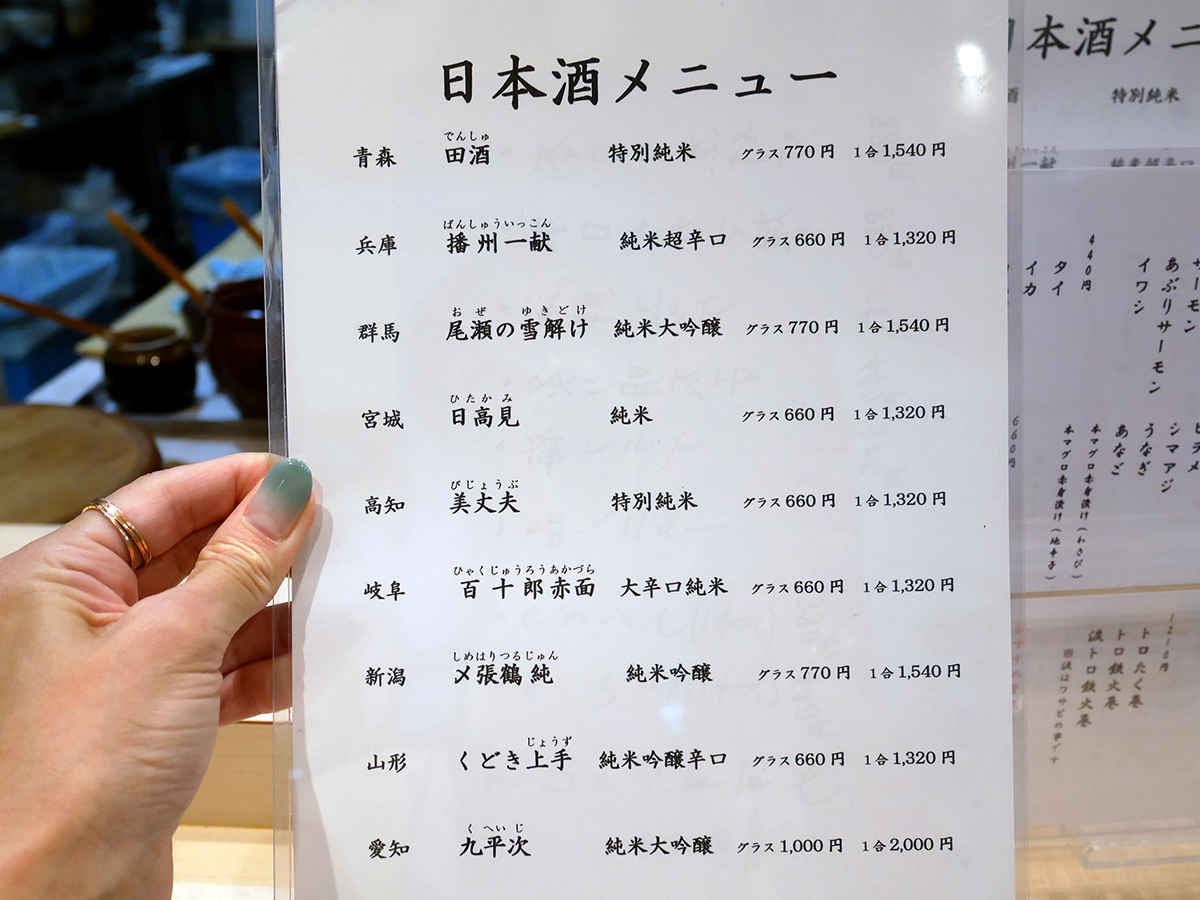 日本酒メニュー
でんしゅ
青森 田酒 特別純米 グラス770円 1合1,540円
ばんしゅういっこん
兵庫 播州一献 純米超辛口 グラス660円 1合1,320円
おぜ ゆきどけ
群馬 尾瀬の雪解け 純米大吟醸 グラス770円 1合1,540円
ひたかみ
宮城 日高見 純米 グラス660円 1合1,320円
びじょうぶ
高知 美丈夫 特別純米 グラス660円 1合1,320円
ひゃくじゅうろうあかづら
岐阜 百十郎赤面 大辛口純米 グラス660円 1合1,320円
しめはりつるじゅん
新潟 〆張鶴 純 純米吟醸 グラス770円 1合1,540円
じょうず
山形 くどき上手 純米吟醸辛口 グラス660円 1合1,320円
くへいじ
愛知 九平次 純米大吟醸 グラス1,000円 1合2,000円
本酒メニ
特別純米
一献 純米超辛口
サーモン
あぶりサーモン
イワシ
440円
タイ
イカ
ヒラメ
シマアジ
うなぎ
あなご
本マグロ赤身漬け(わさび)
本マグロ赤身漬け(地辛子)
660円
1210円
トロたく巻
トロ鉄火巻
涙トロ鉄火巻
※涙はワサビの事です